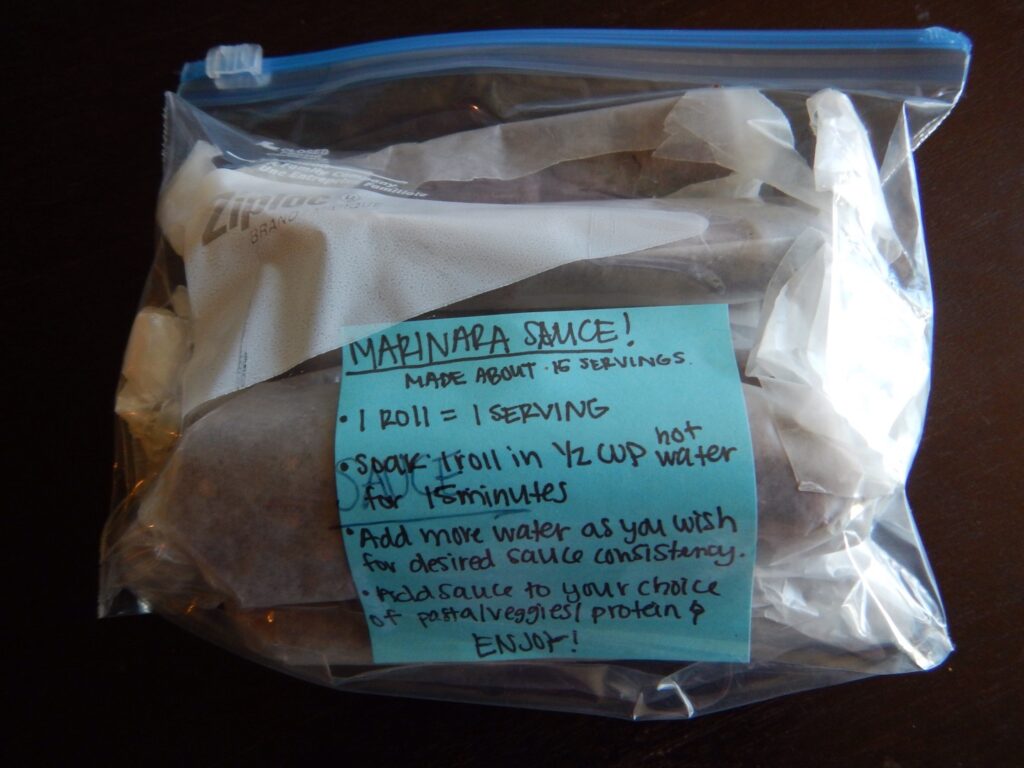 CLOSED
A Family Company
Une Entreprise Familiale
Ziploc
BRAND
MARINARA SAUCE!
MADE ABOUT 15 SERVINGS.
• 1 ROLL = 1 SERVING
• Soak 1 roll in 1/2 cup hot water
SAUCE
for 15 minutes
• Add more water as you wish
for desired sauce consistency.
• Add sauce to your choice
of pasta/veggies/protein &
ENJOY!